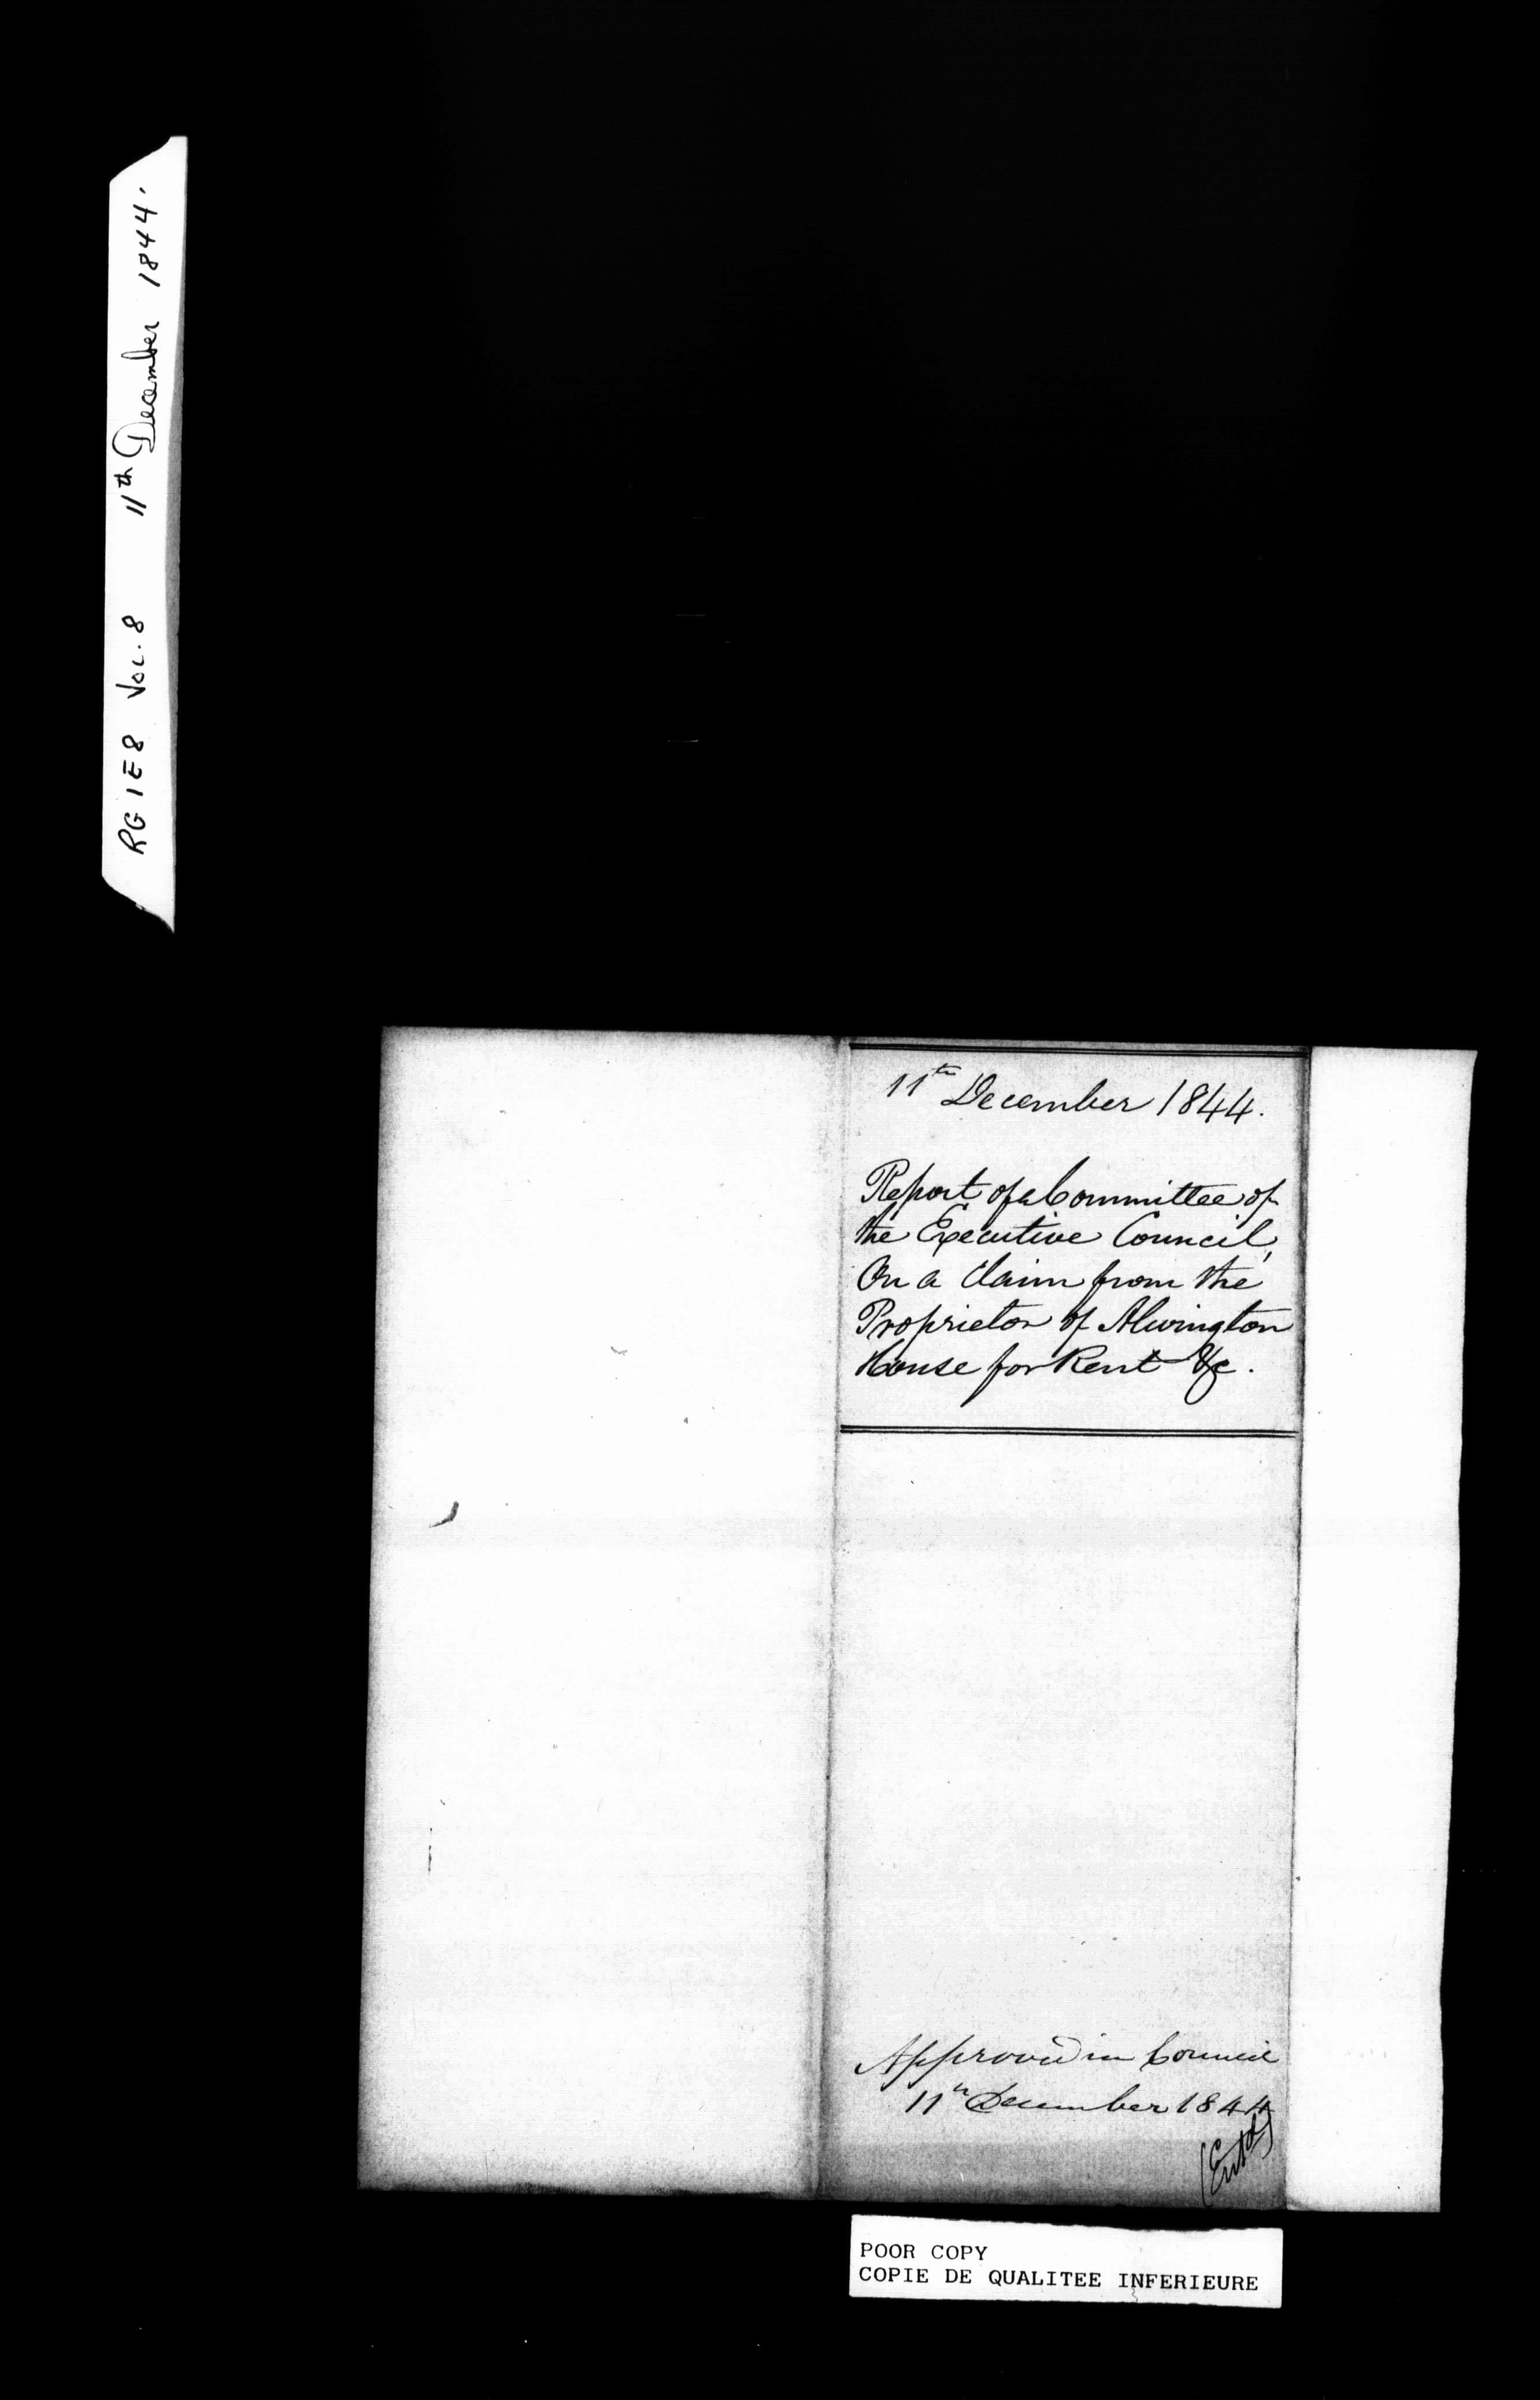 RG 1 E 8 Vol. 8 11th December 1844.
11th December 1844.
Report of a Committee of
the Executive Council,
On a Claim from the
Proprietor of Alwington
House for Rent &c.
Approved in Council
11th December 1844
(Entd)
POOR COPY
COPIE DE QUALITEE INFERIEURE